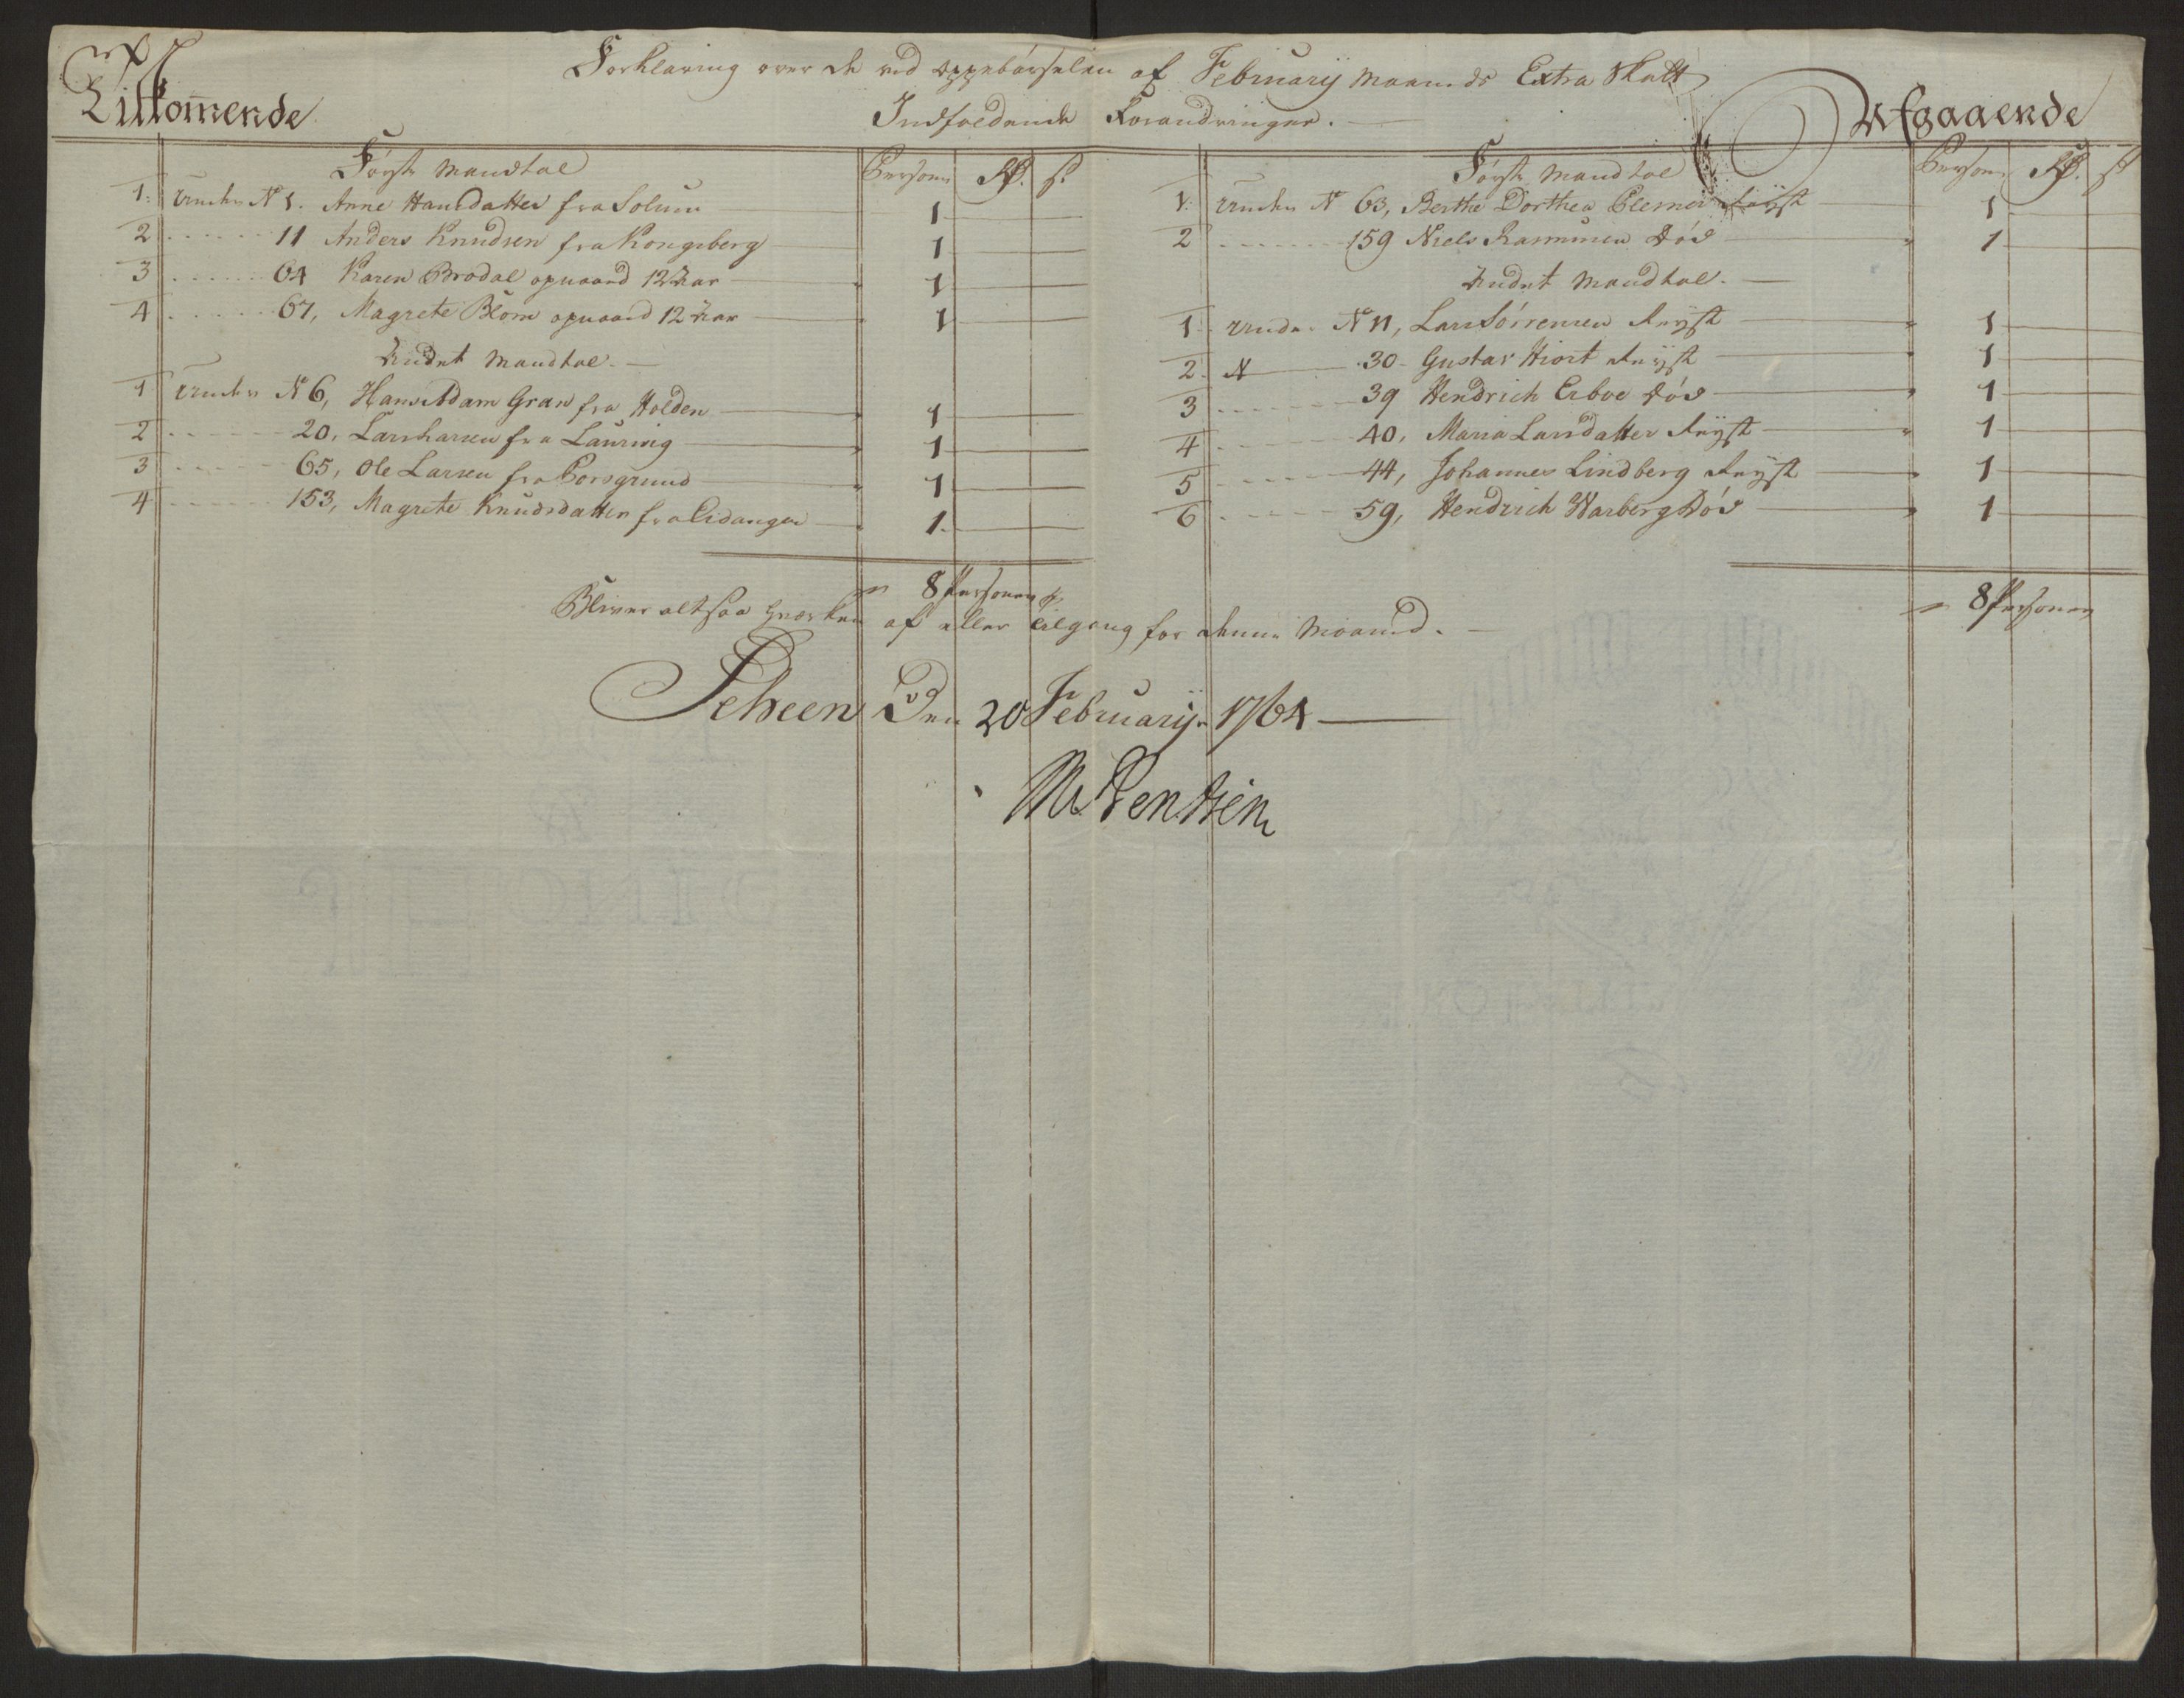 Forklaring over de ved Oppebørselen af Februarij Maaneds Extra Skatt
Indfaldende Forandringer.
Tilkom̄ende
Første Mandtal Persone Rdr. s.
1. Under No 1. Anne Hansdatter fra Solum 1
2 11 Anders Knudsen fra Kongsberg 1
3 64 Karen Brodal opnaaed 12 Aar 1
4 67, Magrete Blom opnaaed 12 Aar 1
Andet Mandtal.
1 Under No 6, Hans Adam Gran fra Holden 1
2 20, Lars Larsen fra Laurvig 1
3 65, Ole Larsen fra Porsgrund 1
4 153, Magrete Knudsdatter fra Eidanger 1
8 Personer
Afgaaende
Første Mandtal Persone Rdr. s
1. Under No 63, Berthe Dorthea Clemen Reyst 1
2 159 Niels Rasmusen Død 1
Andet Mandtal.
1 Under No 11, Lars Sørrensen Reyst 1
2. N 30 Gustav Hiort Reyst 1
3 39 Hendrich Erboe Død 1
4 40, Maria Larsdatter Reyst 1
5 44, Johannes Lindberg Reyst 1
6 59, Hendrich Warberg Død 1
8 Personer
Bliver altsaa hverken af eller tilgang for denne Maaned.
Scheen Den 20 Februarij 1764